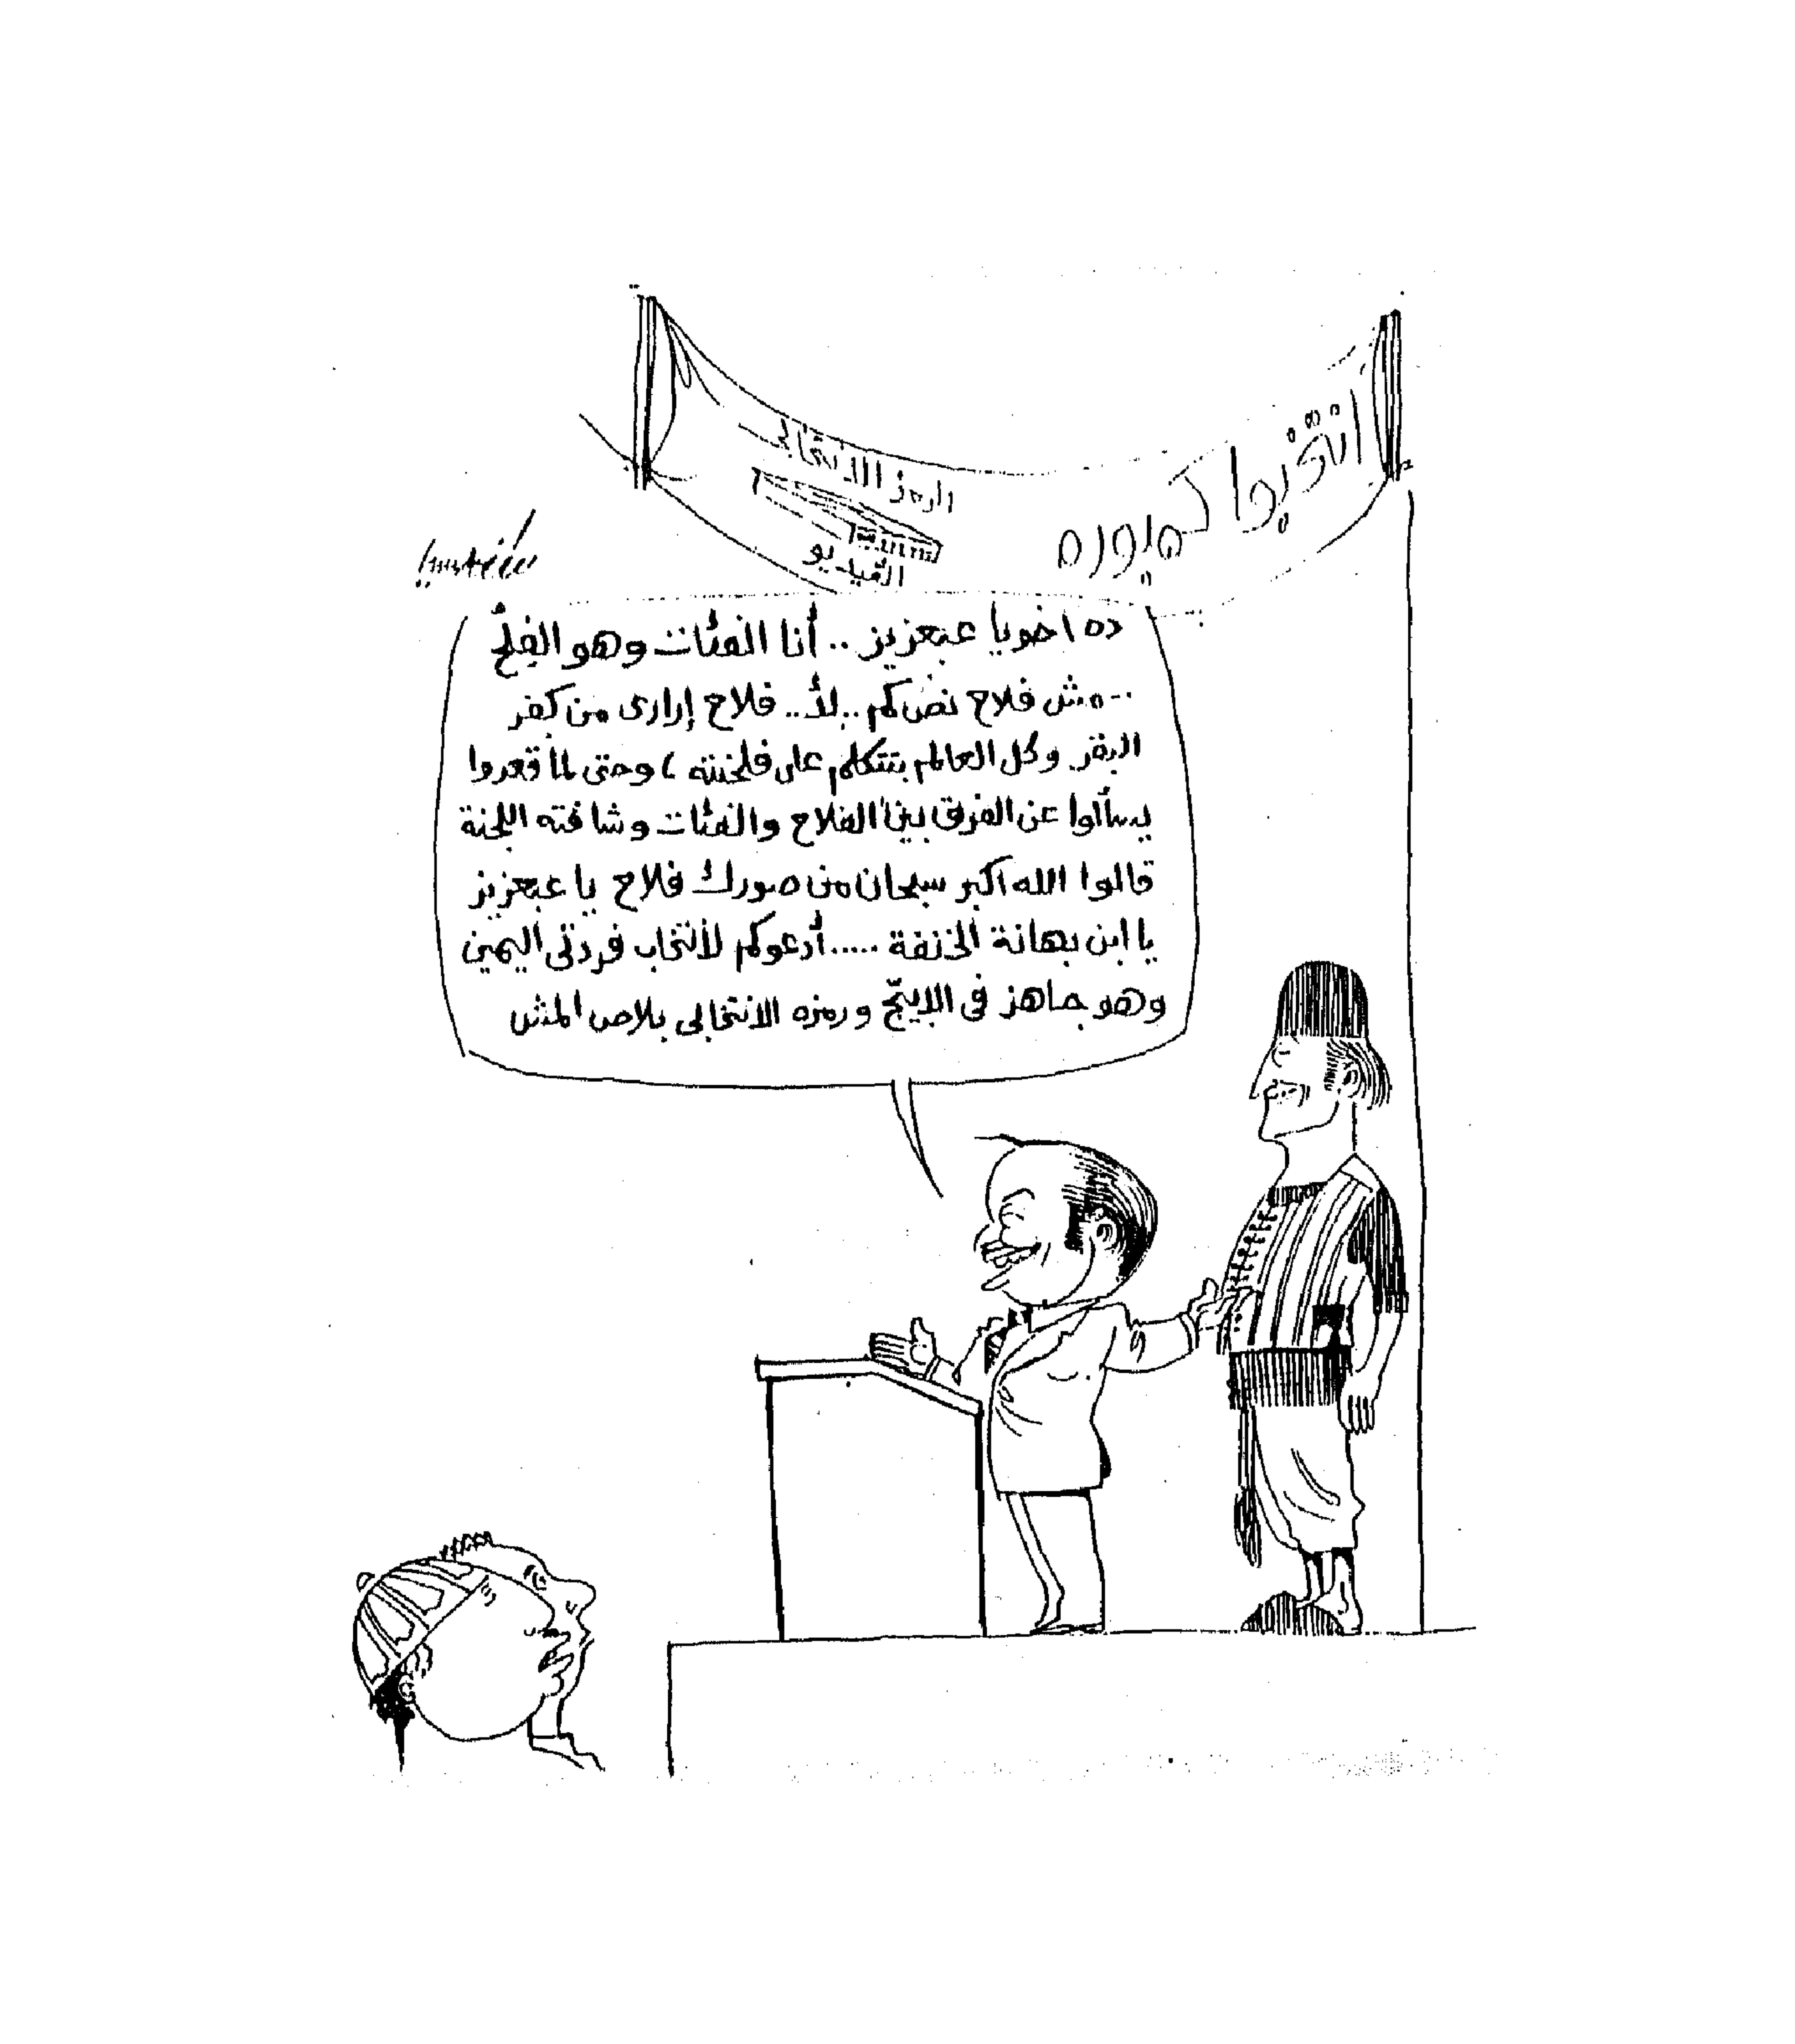 انتخبوا كمبوره
الرمز الانتخابى
الڤيديو
ده اخويا عبعزيز .. أنا الفئات وهو الفلح
... مش فلاح نص كم .. لأ .. فلاح إرارى من كفر
البقر وكل العالم بتتكلم على فلحنته ، وحتى لما قعدوا
يسألوا عن الفرق بين الفلاح والفئات وشافته اللجنة
قالوا الله اكبر سبحان من صورك فلاح يا عبعزيز
يا ابن بهانة الخنفة ..... أدعوكم لأنتخاب فردتى اليمين
وهو جاهز فى اللابيج ورمزه الانتخابى بلاص المش